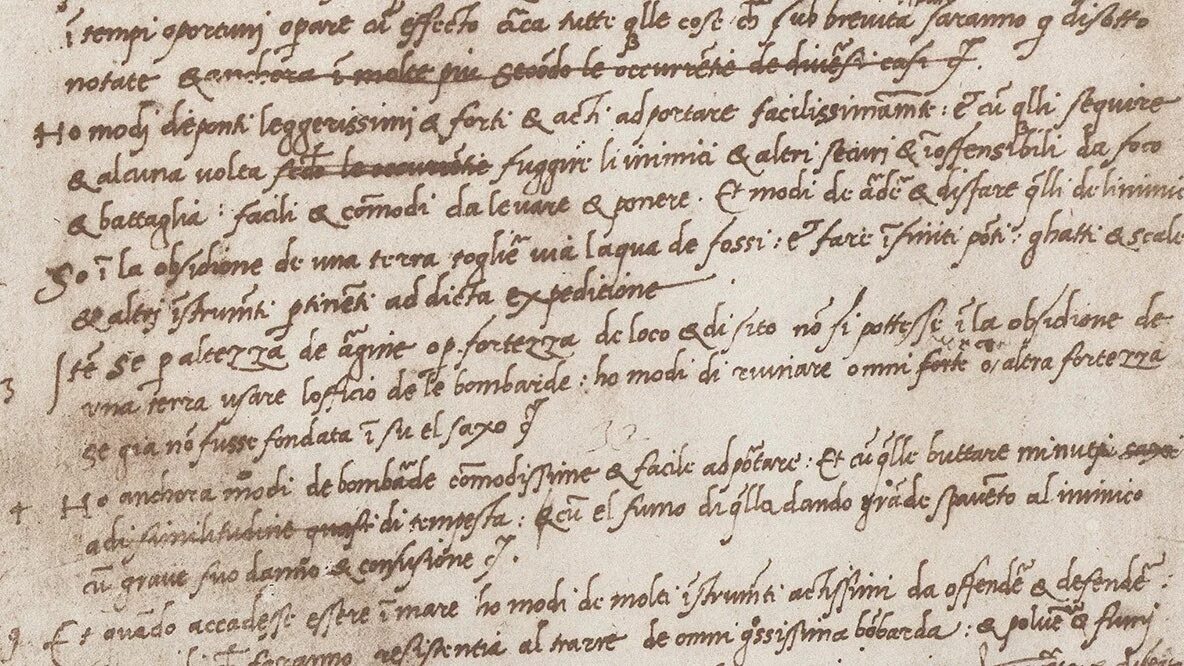 ī tempi oportuni oꝑare ad effecto cā̄ca tutte q̄lle cose ch̄ sub brevita saranno q̄ disotto
notate & anchora ī molte piu secōdo le occurrētie de divēsi casi &.
Ho modj de ponti leggerissimj & forti & acti ad portare facilissimamēte: Et cū q̄lli seguire
& alcuna volta secōdo le occurrētie fuggire li inimici & altri securi & īoffensibili da foco
& battaglia: facili & cōmodi da levare & ponere. Et modi de ārdē & disfare q̄lli de linimici
So ī la obsidione de una terra toglīe via laqua de fossi: et fare īfiniti pōti: ghatti & scale
& altrj īstrumēti ꝑtinēti ad dicta expedicione
3 Itē se ꝑ altezza de ārgine o ꝑ fortezza de loco & di sito nō si pottesse ī la obsidione de
una terra usare lofficio de le bombarde: ho modi di ruinare omni forte o altra fortezza
se gia nō fusse fondata ī su el saxo &
4 Ho anchora modi de bombāde cōmodissime & facile ad pōtare: Et cū q̄lle buttare minuti saxi
a di similitudine quasi di tempesta: & cū el fumo di q̄lla dando grāde spavēto al inimico
cū grave suo danno & confusione &.
9 Et quādo accadesse essere ī mare ho modi de molti īstrumēti actissimi da offendē & defendē:
farranno resistentia al trarre de omni grossissima bōbarda: & polvē & fumi